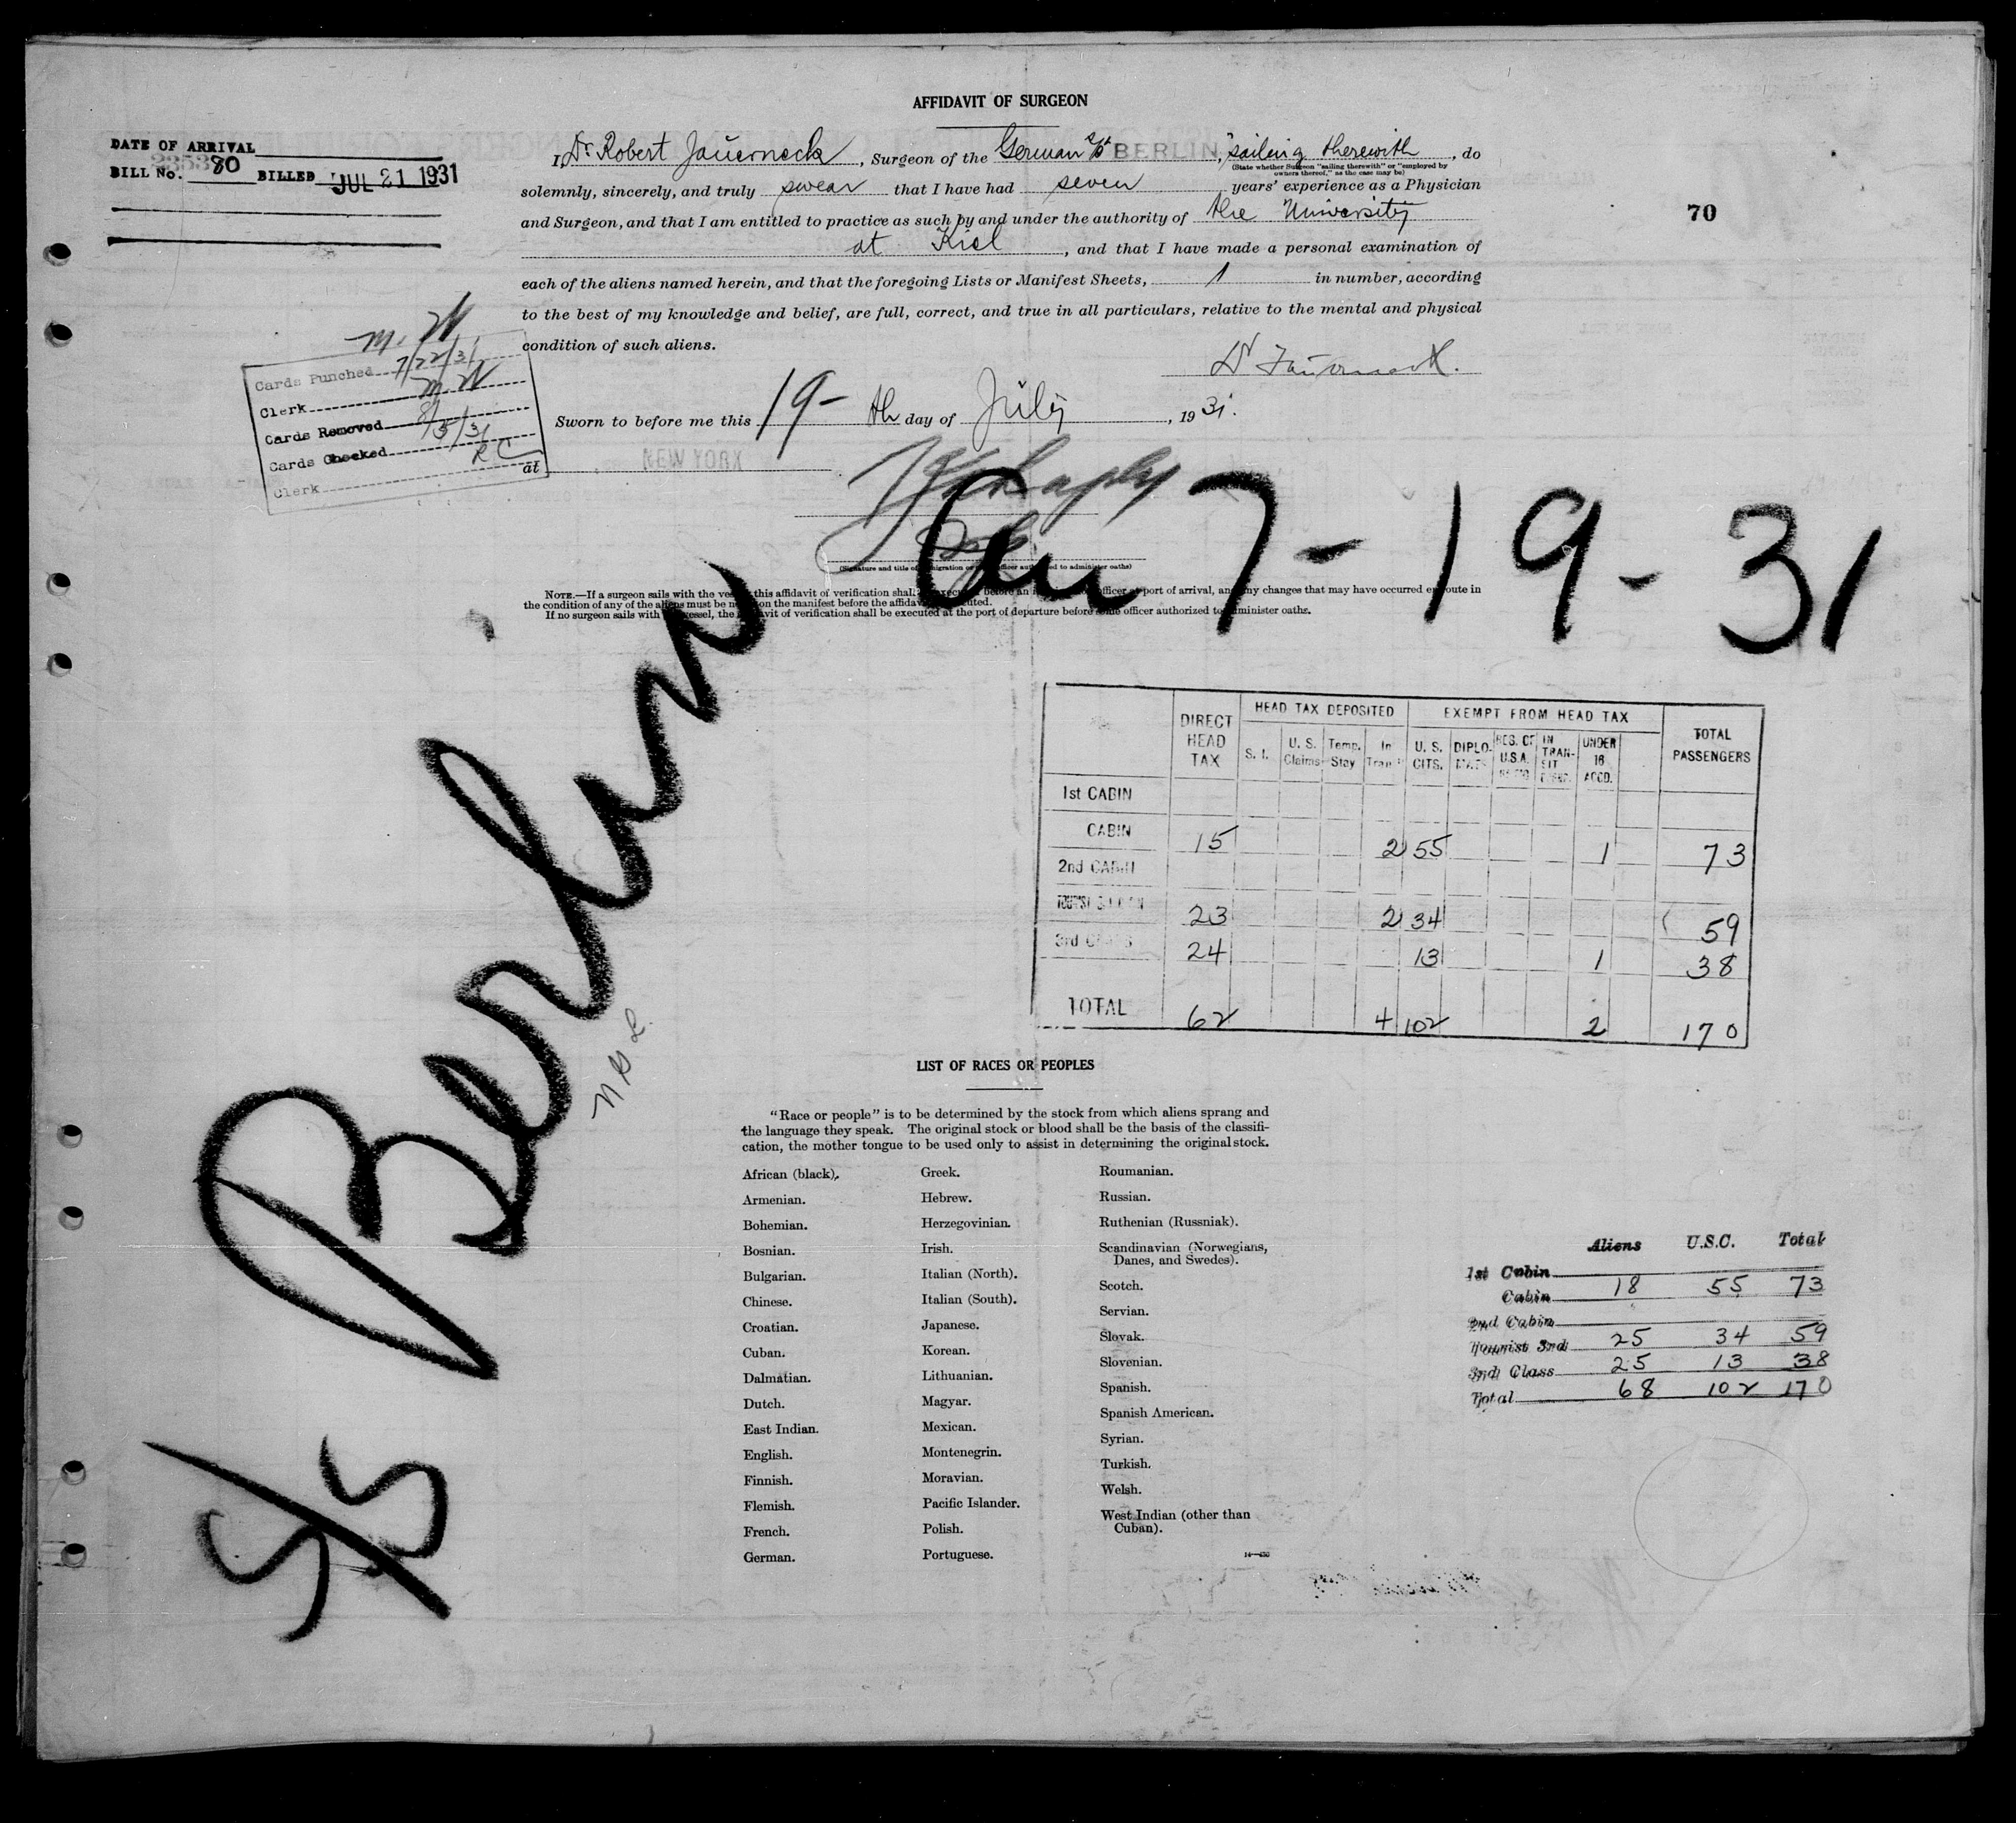 AFFIDAVIT OF SURGEON
DATE OF ARRIVAL
BILL No. 80 BILLED JUL 21 1931
I, Dr Robert Jauerneck, Surgeon of the German S/S BERLIN, "sailing therewith", do
(State whether Surgeon "sailing therewith" or "employed by
owners thereof," as the case may be)
solemnly, sincerely, and truly swear that I have had seven years' experience as a Physician
and Surgeon, and that I am entitled to practice as such by and under the authority of the University
at Kiel, and that I have made a personal examination of
each of the aliens named herein, and that the foregoing Lists or Manifest Sheets, 1 in number, according
to the best of my knowledge and belief, are full, correct, and true in all particulars, relative to the mental and physical
condition of such aliens.
70
Dr Jauerneck.
M. W
Cards Punched 7/22/31
Clerk M. W
Cards Removed 8/5/31
Cards Checked RC
Clerk
Sworn to before me this 19-th day of July, 1931.
at NEW YORK
Arr 7-19-31
(Signature and title of immigration or officer authorized to administer oaths)
NOTE.—If a surgeon sails with the vessel this affidavit of verification shall be executed before an officer at port of arrival, and any changes that may have occurred en route in
the condition of any of the aliens must be noted on the manifest before the affidavit is executed.
If no surgeon sails with the vessel, the affidavit of verification shall be executed at the port of departure before some officer authorized to administer oaths.
S/S Berlin
N G L
DIRECT HEAD TAX HEAD TAX DEPOSITED EXEMPT FROM HEAD TAX TOTAL PASSENGERS
S. I. U. S. Claims Temp. Stay In Transit U. S. CITS. DIPLOMATS RES. OF U.S.A. IN TRANSIT UNDER 16 ACCD.
1st CABIN
CABIN 15 2 55 1 73
2nd CABIN
TOURIST 3rd CABIN 23 2 34 59
3rd CLASS 24 13 1 38
TOTAL 62 4 102 2 170
LIST OF RACES OR PEOPLES
"Race or people" is to be determined by the stock from which aliens sprang and
the language they speak. The original stock or blood shall be the basis of the classifi-
cation, the mother tongue to be used only to assist in determining the original stock.
African (black).
Armenian.
Bohemian.
Bosnian.
Bulgarian.
Chinese.
Croatian.
Cuban.
Dalmatian.
Dutch.
East Indian.
English.
Finnish.
Flemish.
French.
German.
Greek.
Hebrew.
Herzegovinian.
Irish.
Italian (North).
Italian (South).
Japanese.
Korean.
Lithuanian.
Magyar.
Mexican.
Montenegrin.
Moravian.
Pacific Islander.
Polish.
Portuguese.
Roumanian.
Russian.
Ruthenian (Russniak).
Scandinavian (Norwegians,
Danes, and Swedes).
Scotch.
Servian.
Slovak.
Slovenian.
Spanish.
Spanish American.
Syrian.
Turkish.
Welsh.
West Indian (other than
Cuban).
Aliens U.S.C. Total
1st Cabin
Cabin 18 55 73
2nd Cabin
Tourist 3rd 25 34 59
3rd Class 25 13 38
Total 68 102 170